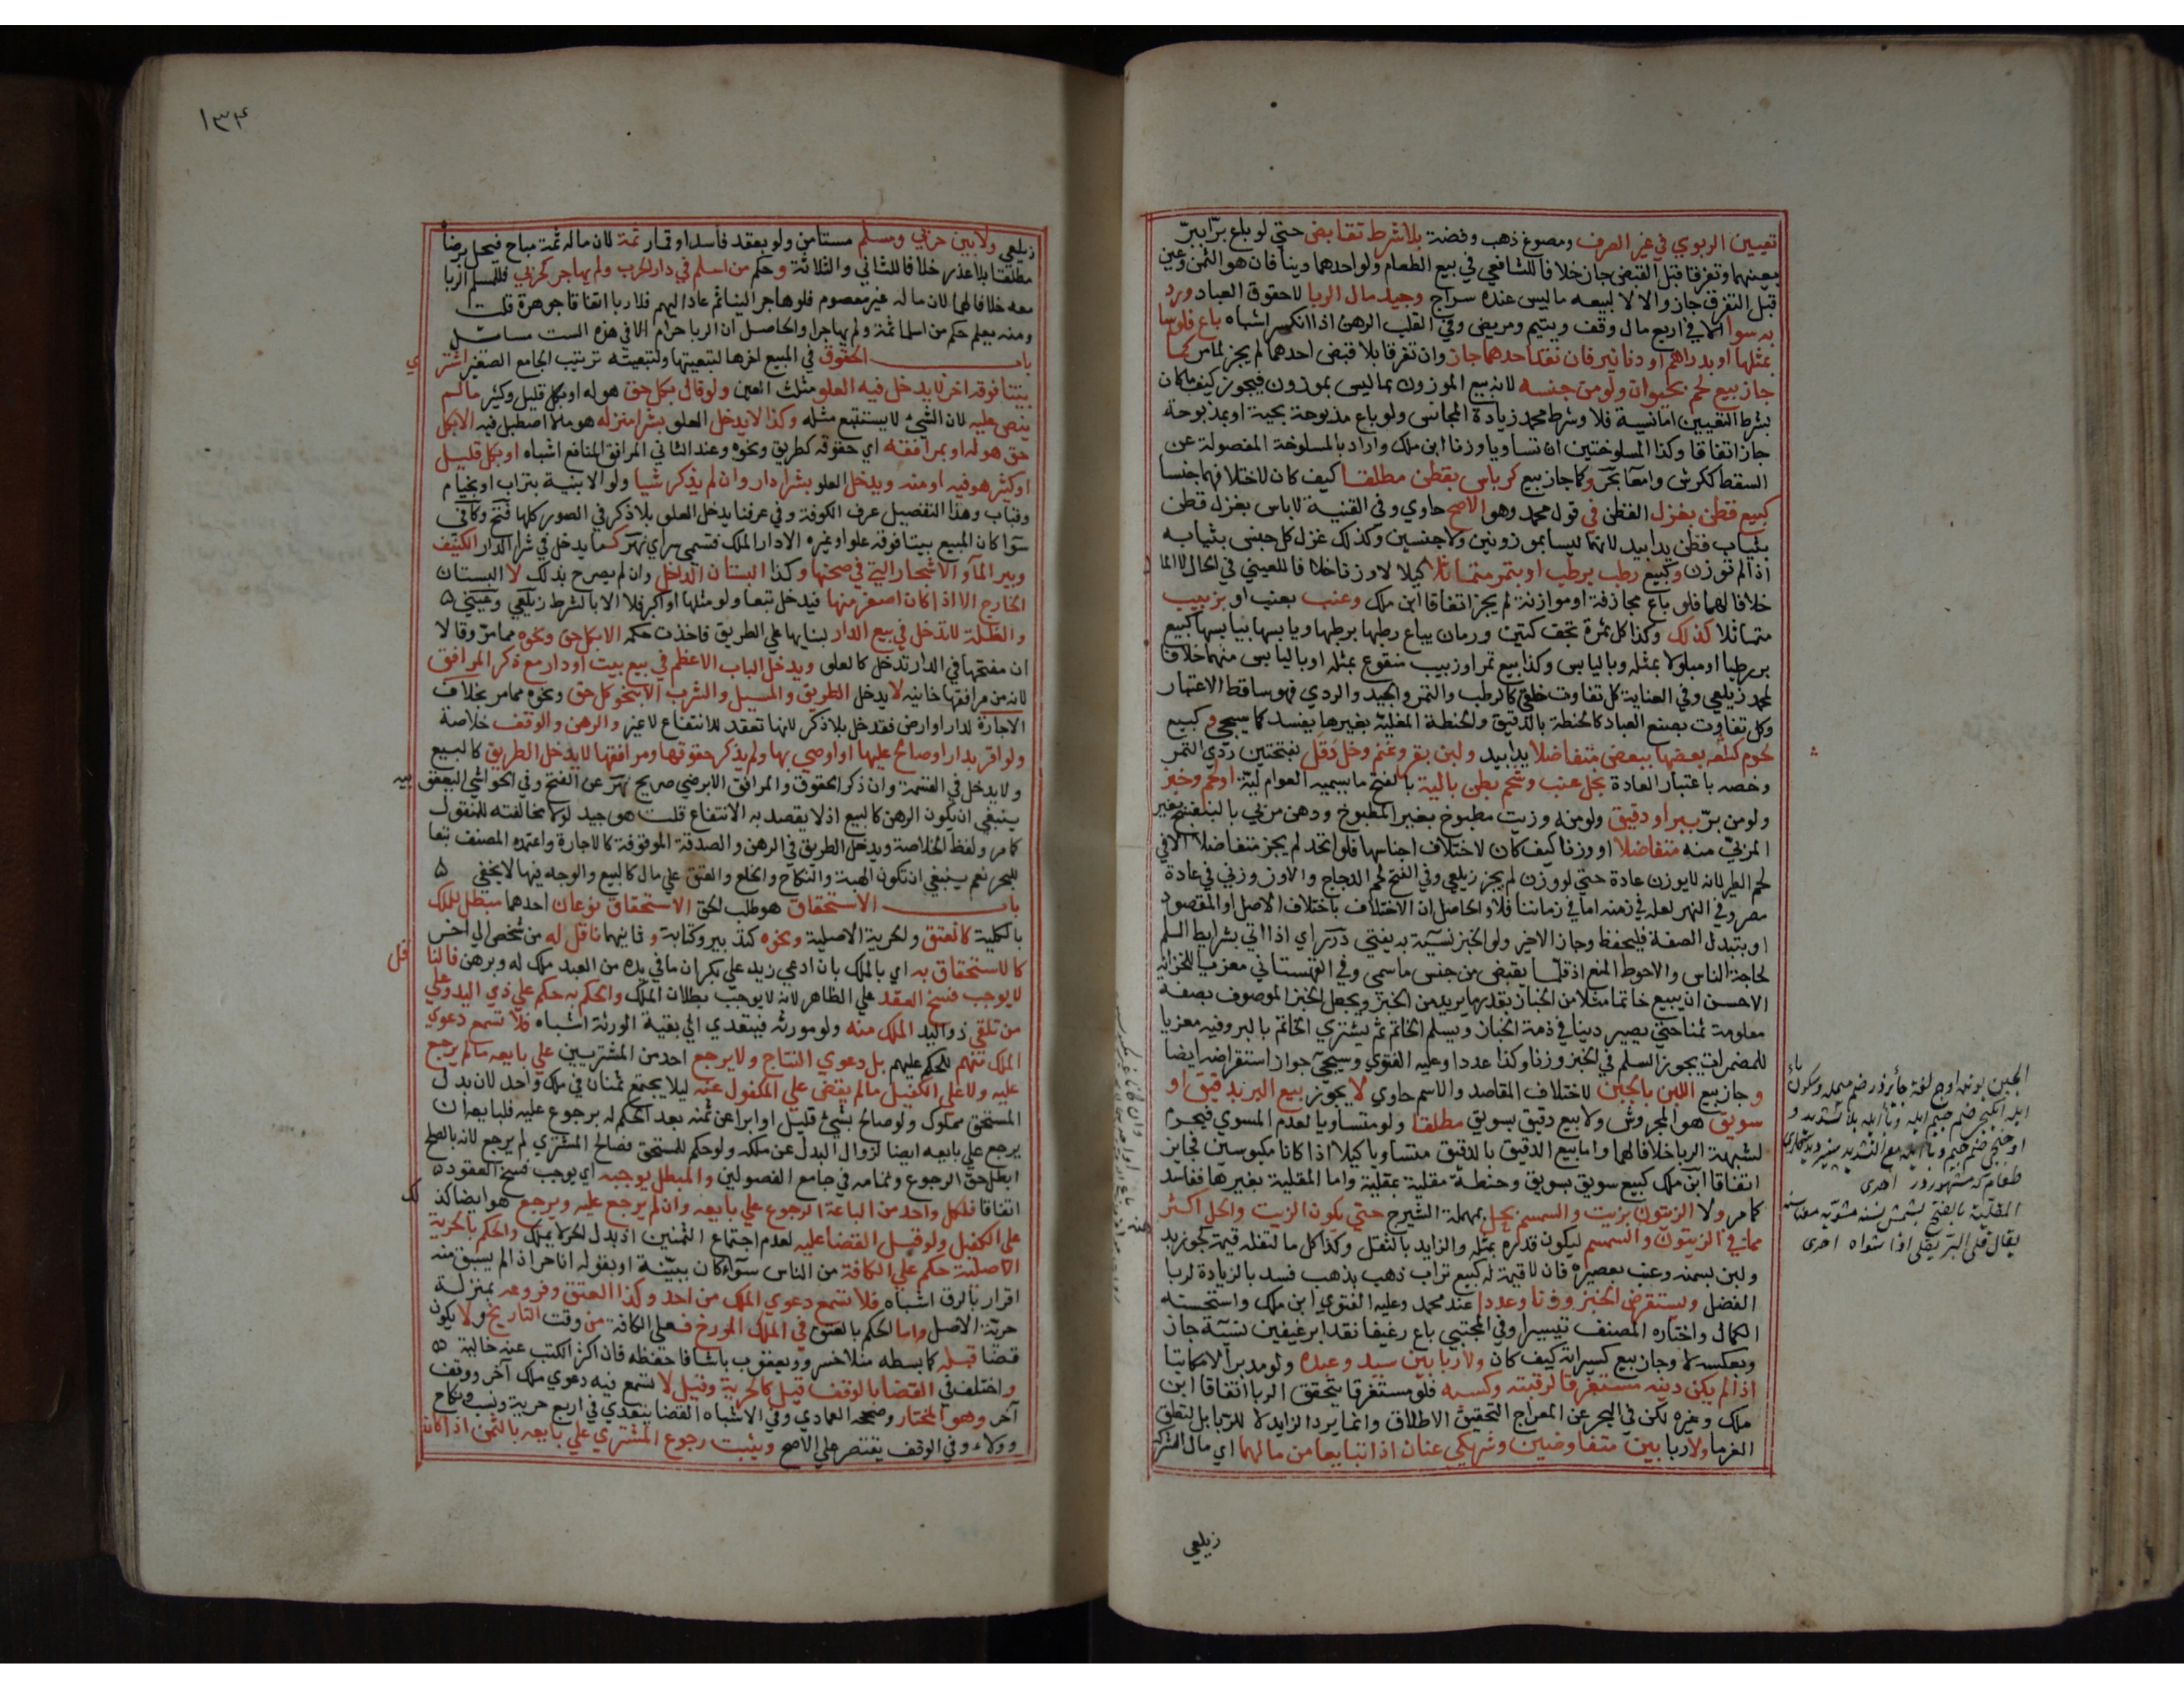 تعيين الربوي في غير الصرف ومصوغ ذهب وفضة بلا شرط تقابض حتي لو باع برا ببر
بعينهما وتفرقا قبل القبض جاز خلافا للشافعي في بيع الطعام ولو احدهما دينا فان هو الثمن وعين
قبل التفرق جاز والا لا لبيعه ما ليس عنده سراج وجيد مال الربا لا حقوق العباد ورد
يه سوا الا في اربع مال وقف ويتيم ومريض وفي القلب الرهن اذا انكسر اشباه باع فلوسا
بمثلها او بدراهم او دنانير فان نقد احدهما جاز وان تفرقا بلا قبض احدهما لم يجز لما مر كما
جاز بيع لحم بحيوان ولو من جنسه لانه بيع الموزون بما ليس بموزون فيجوز كيف ما كان
بشرط التعيين اما نسية فلا وشرط محمد زيادة المجانس ولو باع مذبوحة بحية او بمذبوحة
جاز اتفاقا وكذا المسلوختين ان تساويا وزنا ابن ملك واراد بالمسلوخة المفصولة عن
السقط ككرش وامعا بحر وكما جاز بيع كرباس بقطن مطلقا كيف كان لاختلافهما جنسا
كبيع قطن بغزل القطن في قول محمد وهو الاصح حاوي وفي القنية لا باس بغزل قطن
بثياب قطن يدا بيد لانهما ليسا بموزونين ولا جنسين وكذلك غزل كل جنس بثيابه
اذا لم توزن وكبيع رطب برطب او بتمر متماثلا كيلا لا وزنا خلافا للعيني في الحال لا المال
خلافا لهما فلو باع مجازفة او موازنة لم يجز اتفاقا ابن ملك وعنب بعنب او بزبيب
متماثلا كذلك وكذا كل ثمرة تجف كتين ورمان يباع رطبها برطبها ويابسها بيابسها كبيع
بر رطبا او مبلولا بمثله وباليابس وكذا بيع تمر او زبيب منقوع بمثله او باليابس منهما خلافا
لمحمد زيلعي وفي العناية كل تفاوت خلقي كالرطب والتمر والجيد والردي فهو ساقط الاعتبار
وكل تفاوت بصنع العباد كالحنطة بالدقيق والحنطة المقلية بغيرها يفسد كما سيجي وكبيع
لحوم مختلفة بعضها ببعض متفاضلا يدا بيد ولبن بقر وغنم وخل دقل بفتحتين ردي التمر
وخصه باعتبار العادة بخل عنب وشحم بطن بالية بالفتح ما يسميه العوام لية او لحم وخبز
ولو من بر ببر او دقيق ولو منه وزيت مطبوخ بغير المطبوخ ودهن مربي بالبنفسج بغير
المربي منه متفاضلا او وزنا كيف كان لاختلاف اجناسها فلو اتحد لم يجز متفاضلا الا في
لحم الطير لانه لا يوزن عادة حتي لو وزن لم يجز زيلعي وفي الفتح لحم الدجاج والاوز وزني في عادة
مصر وفي النهر لعله في زمنه اما في زماننا فلا والحاصل ان الاختلاف باختلاف الاصل او المقصود
او بتبدل الصفة فليحفظ وجاز الاخير ولو الخبز نسية به يفتي درر اي اذا اتي بشرايط السلم
لحاجة الناس والاحوط المنع اذ قلما يقبض من جنس ما سمي وفي القهستاني معزيا للخزانة
الاحسن ان يبيع خاتما مثلا من الخباز بقدر ما يريد من الخبز ويجعل الخبز الموصوف بصفة
معلومة ثمنا حتي يصير دينا في ذمة الخباز ويسلم الخاتم ثم يشتري الخاتم بالبر وفيه معزيا
للمضمرات يجوز السلم في الخبز وزنا وكذا عددا وعليه الفتوي وسيجي جواز استقراضه ايضا
وجاز بيع اللبن بالجبن لاختلاف المقاصد والاسم حاوي لا يجوز بيع البر بدقيق او
سويق هو المجروش ولا بيع دقيق بسويق مطلقا ولو متساويا لعدم المسوي فيحرم
لشبهة الربا خلافا لهما واما بيع الدقيق بالدقيق متساويا كيلا اذا كانا مكبوسين فجايز
اتفاقا ابن ملك كبيع سويق بسويق وحنطة مقلية بمقلية واما المقلية بغيرها ففاسد
كما مر ولا الزيتون بزيت والسمسم بحل بمهملة الشيرج حتي يكون الزيت والحل اكثر
مما في الزيتون والسمسم ليكون قدره بمثله والزايد بالثفل وكذا كل ما لثفله قيمة كجوز بد
ولبن بسمنه وعنب بعصيره فان لا قيمة له كبيع تراب ذهب بذهب فسد بالزيادة لربا
الفضل ويستقرض الخبز وزنا وعددا عند محمد وعليه الفتوي ابن ملك واستحسنه
الكمال واختاره المصنف تيسيرا وفي المجتبي باع رغيفا نقدا برغيفين نسية جاز
وبعكسه لا وجاز بيع كسيراته كيف كان ولا ربا بين سيد وعبده ولو مدبرا لا مكاتبا
اذا لم يكن دينه مستغرقا لرقبته وكسبه فلو مستغرقا يتحقق الربا اتفاقا ابن
ملك وغيره لكن في البحر عن المعراج التحقيق الاطلاق وانما يرد الزايد لا للربا بل لتعلق
الغرما ولا ربا بين متفاوضين وشريكي عنان اذا تبايعا من مالهما اي مال الشركة
زيلعي
١٣٤
زيلعي ولا بين حربي ومسلم مستامن ولو بعقد فاسد او قمار ثمة لان ماله ثمة مباح فيحل برضاه
مطلقا بلا عذر خلافا للثاني والثلاثة وحكم من اسلم في دار الحرب ولم يهاجر كحربي فللمسلم الربا
معه خلافا لهما لان ماله غير معصوم فلو هاجر الينا ثم عاد اليهم فلا ربا اتفاقا جوهرة قلت
ومنه يعلم حكم من اسلما ثمة ولم يهاجرا والحاصل ان الربا حرام الا في هذه الست مسائل
باب الحقوق في المبيع اخرها لتبعيتها ولتبعيته ترتيب الجامع الصغير اشتري
بيتا فوقه اخر لا يدخل فيه العلو مثلث العين ولو قال بكل حق هو له او بكل قليل وكثير ما لم
ينص عليه لان الشي لا يستتبع مثله وكذا لا يدخل العلو بشرا منزل هو ما لا اصطبل فيه الا بكل
حق هو له او بمرافقه اي حقوقه كطريق ونحوه وعند الثاني المرافق المنافع اشباه او بكل قليل
او كثير هو فيه او منه ويدخل العلو بشرا دار وان لم يذكر شيا ولو الابنية بتراب او بخيام
وقباب وهذا التفصيل عرف الكوفة وفي عرفنا يدخل العلو بلا ذكر في الصور كلها فتح وكافي
سوا كان المبيع بيتا فوقه علو او غيره الا دار الملك فتسمي سراي نهر كما يدخل في شرا الدار الكنيف
وبير الما والاشجار التي في صحنها وكذا البستان الداخل وان لم يصرح بذلك لا البستان
الخارج الا اذا كان اصغر منها فيدخل تبعا ولو مثلها او اكبر فلا الا بالشرط زيلعي وعيني
والظلة لا تدخل في بيع الدار لبنايها علي الطريق فاخذت حكمه الا بكل حق ونحوه مما مر وقالا
ان مفتحها في الدار تدخل كالعلو ويدخل الباب الاعظم في بيع بيت او دار مع ذكر المرافق
لانه من مرافقها خانيه لا يدخل الطريق والمسيل والشرب الا بنحو كل حق ونحوه مما مر بخلاف
الاجارة لدار او ارض فتدخل بلا ذكر لانها تعقد للانتفاع لا غير والرهن والوقف خلاصة
ولو اقر بدار او صالح عليها او اوصي بها ولم يذكر حقوقها ومرافقها لا يدخل الطريق كالبيع
ولا يدخل في القسمة وان ذكر الحقوق والمرافق الا برضي صريح نهر عن الفتح وفي الحواشي اليعقوبيه
ينبغي ان يكون الرهن كالبيع اذ لا يقصد به الانتفاع قلت هو جيد لولا مخالفته للمنقول
كما مر ولفظ الخلاصة ويدخل الطريق في الرهن والصدقة الموقوفة كالاجارة واعتمده المصنف تبعا
للبحر نعم ينبغي ان تكون الهبة والنكاح والخلع والعتق علي مال كالبيع والوجه فيها لا يخفي
باب الاستحقاق هو طلب الحق الاستحقاق نوعان احدهما مبطل للملك
بالكلية كالعتق والحرية الاصلية ونحوه كتدبير وكتابة وثانيهما ناقل له من شخص الي اخر
كالاستحقاق به اي بالملك بان ادعي زيد علي بكر ان ما في يده من العبد ملك له وبرهن فالناقل
لا يوجب فسخ العقد علي الظاهر لانه لا يوجب بطلان الملك والحكم به حكم علي ذي اليد وعلي
من تلقي ذو اليد الملك منه ولو مورثه فيتعدي الي بقية الورثة اشباه فلا تسمع دعوي
الملك منهم للحكم عليهم بل دعوي النتاج ولا يرجع احد من المشتريين علي بايعه ما لم يرجع
عليه ولا علي الكفيل ما لم يقض علي المكفول عنه ليلا يجتمع ثمنان في ملك واحد لان بدل
المستحق مملوك ولو صالح بشي قليل او ابرا عن ثمنه بعد الحكم له برجوع عليه فلبايعه ان
يرجع علي بايعه ايضا لزوال البدل عن ملكه ولو حكم للمستحق فصالح المشتري لم يرجع لانه بالصلح
ابطل حق الرجوع وتمامه في جامع الفصولين والمبطل يوجبه اي يوجب فسخ العقود
اتفاقا فلكل واحد من الباعة الرجوع علي بايعه وان لم يرجع عليه ويرجع هو ايضا كذلك
علي الكفيل ولو قبل القضا عليه لعدم اجتماع الثمنين اذ بدل الحر لا يملك والحكم بالحرية
الاصلية حكم علي الكافة من الناس سوا كان ببينة او بقوله انا حر اذا لم يسبق منه
اقرار بالرق اشباه فلا تسمع دعوي الملك من احد وكذا العتق وفروعه بمنزلة
حرية الاصل واما الحكم بالعتق في الملك المورخ فعلي الكافة من وقت التاريخ ولا يكون
قضا قبله كما بسطه منلا خسرو ويعقوب باشا فاحفظه فان اكثر الكتب عنه خالية
واختلف في القضا بالوقف قيل كالحرية وقيل لا تسمع فيه دعوي ملك آخر ووقف
آخر وهو المختار وصححه العمادي وفي الاشباه القضا يتعدي في اربع حرية ونسب ونكاح
وولاء وفي الوقف يقتصر علي الاصح ويثبت رجوع المشتري علي بايعه بالثمن اذا كان